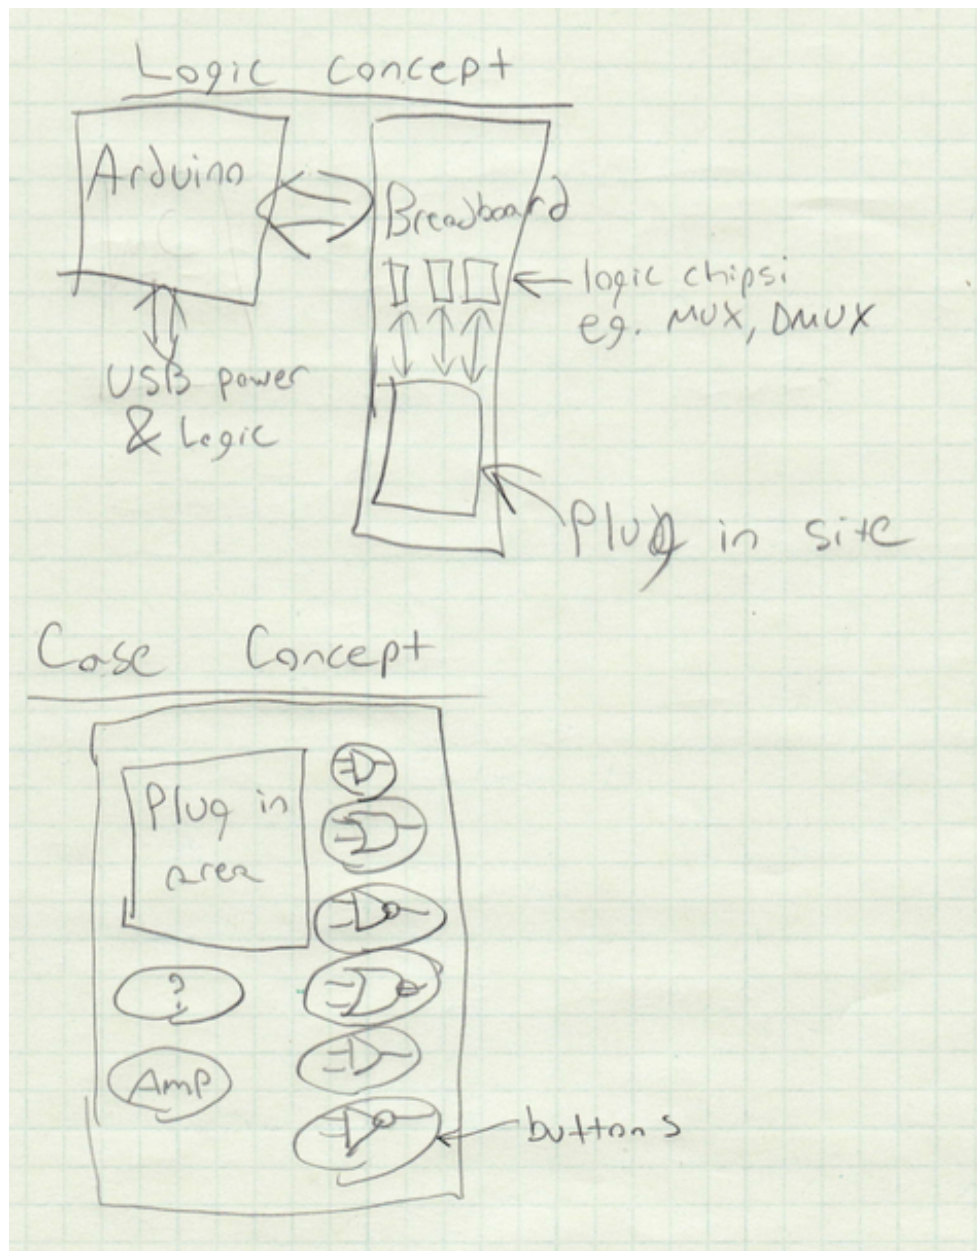 Logic concept
Arduino
Breadboard
logic chips;
eg. MUX, DMUX
USB power
& Logic
Plug in site
Case Concept
Plug in
area
?
Amp
buttons